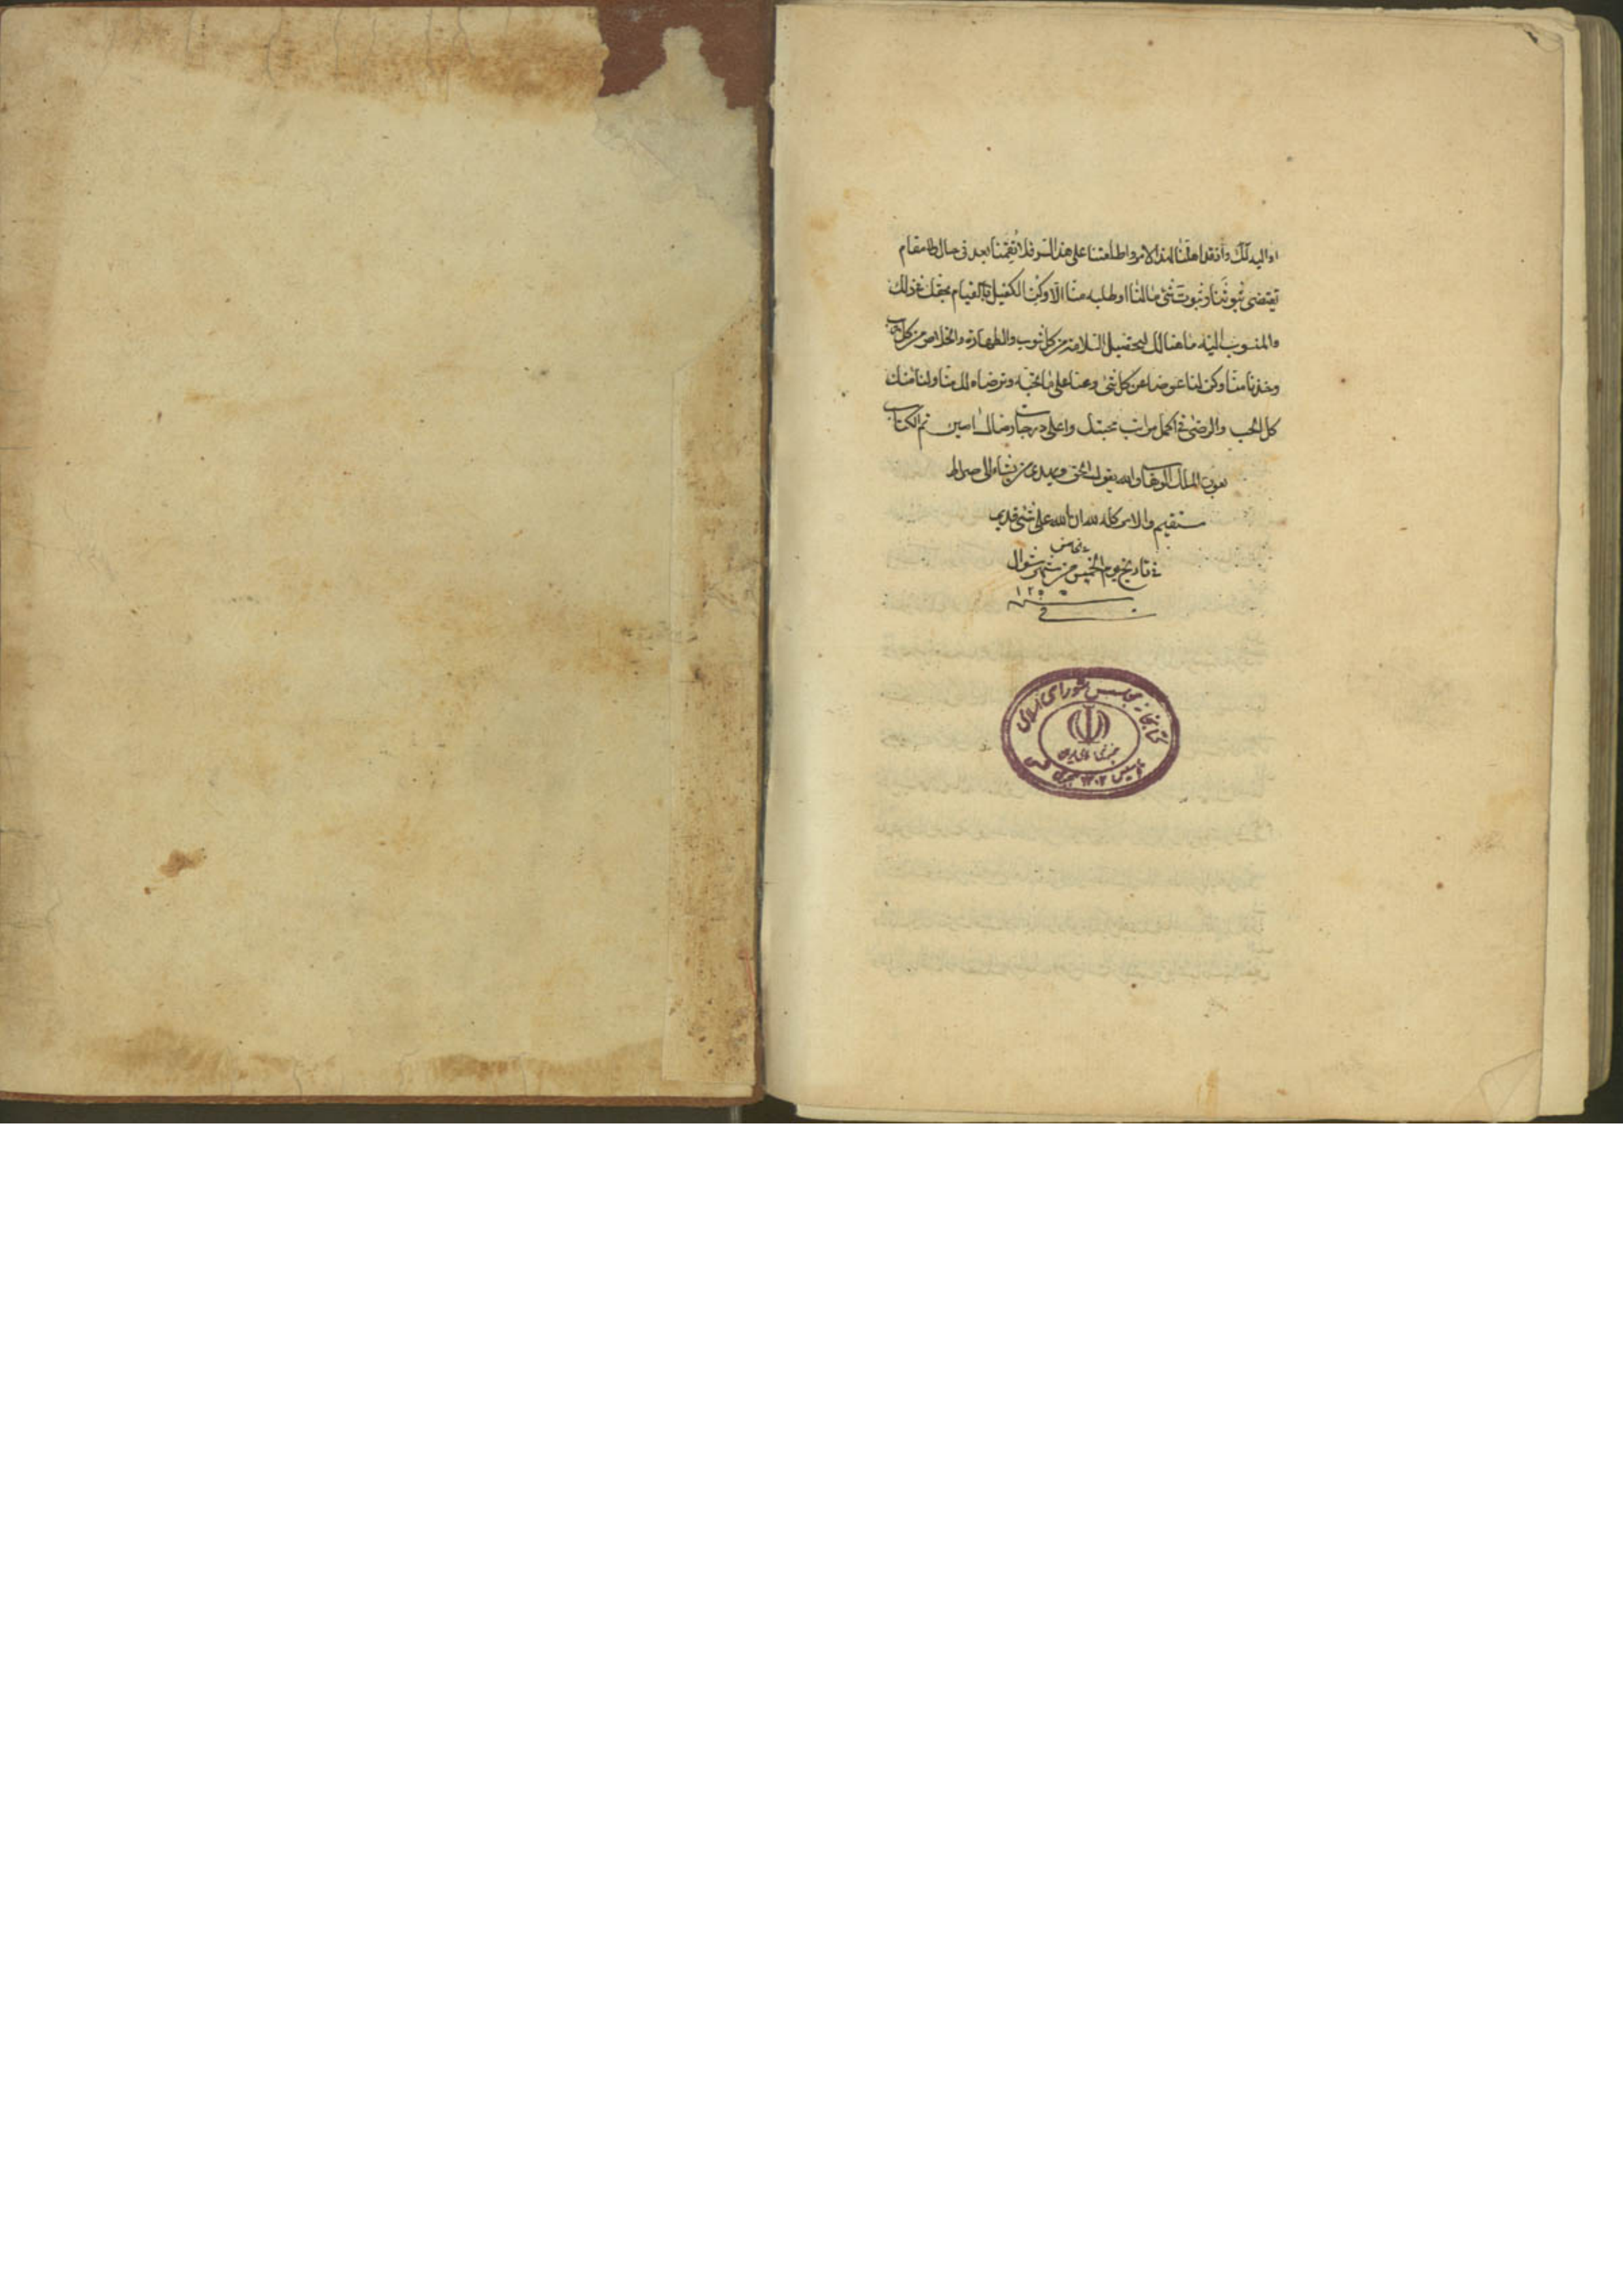 او اليه لك واذ قد اهلتنا لهذا الامر واطلعتنا على هذا السر فلا تقمنا بعد فى حال ولا مقام
يقتضى ثبوتنا وثبوت شئ مالنا او طلبه منا الا وكن الكفيل بالقيام بحقك فى ذلك
والمنسوب اليه ما هنالك لتحصيل السلامة من كل شوب والطهارة والخلاص من كل
وخذنا منا وكن لنا عوضا عن كل شئ وعنا على ما تحبه وترضاه لك منا ولنا منك
كل الحب والرضى فى اكمل مراتب محبتك واعلى درجات رضاك امين تم الكتاب
بعون الملك الوهاب والله يقول الحق ويهدى من يشاء الى صراط
مستقيم والامر كله لله ان الله على شئ قدير
خامس
فى تاريخ يوم الخميس من شهر شوال
فى سنه
كتابخانه مجلس شورای اسلامی
جمهوری اسلامی ایران
تأسیس ۱۳۰۲ هجری شمسی